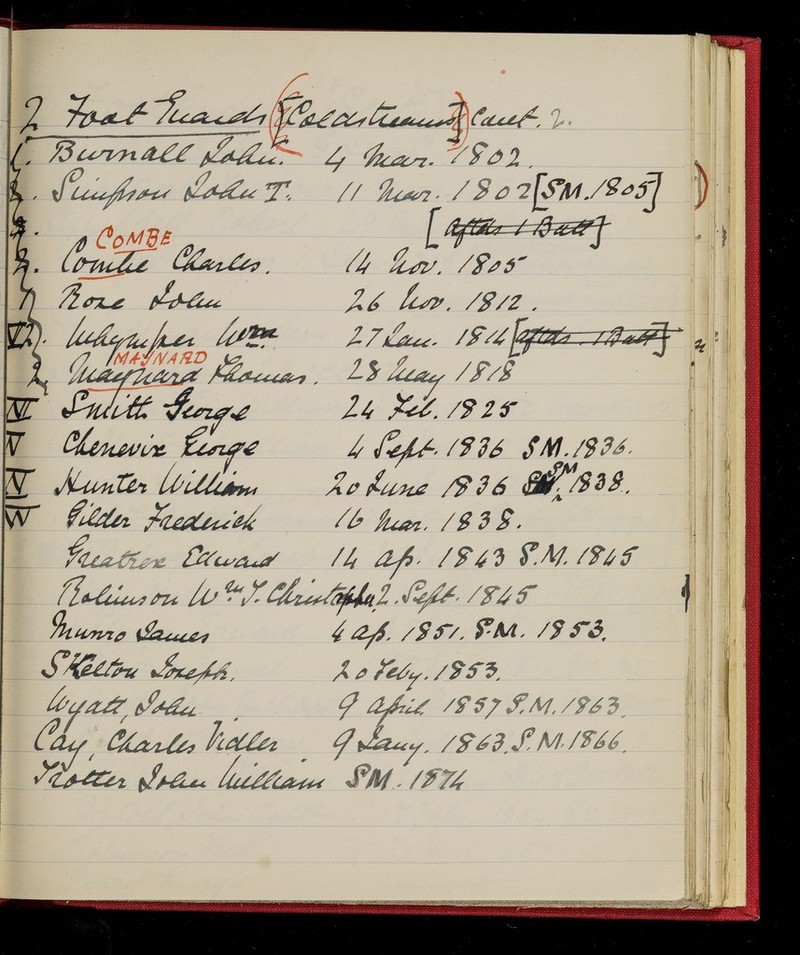 2 Foot Guards [(Coldstreams)] Cont. 2.
1. Burnall John. 4 Mar. 1802.
2. Simpson John T. 11 Mar. 1802 [SM. 1805]
[aftds 1 Batt]
COMBE
2. Combe Charles. 14 Nov. 1805
1 Rose John 26 Nov. 1812.
Whymper Wm 27 Jan. 1814 [aftds. 1 Batt]
MAYNARD
2 Maynard Thomas. 28 May 1818
VI Smith George 24 Feb. 1825
V Chenevix George 4 Sept. 1836 SM. 1836.
Hunter William 20 June 1836 SM 1838.
IV Gilder Frederick 16 Mar. 1838.
Greatrex Edward 14 Ap. 1843 S.M. 1845
Robinson Wm T. Christopher 2. Sept. 1845
Munro James 4 ap. 1851. S.M. 1853.
Skelton Joseph. 20 Feby. 1853.
Wyatt, John 9 April 1857 S.M. 1863.
Cay, Charles Vidler 9 Jany. 1863. S.M. 1866.
Trotter John William SM. 1874